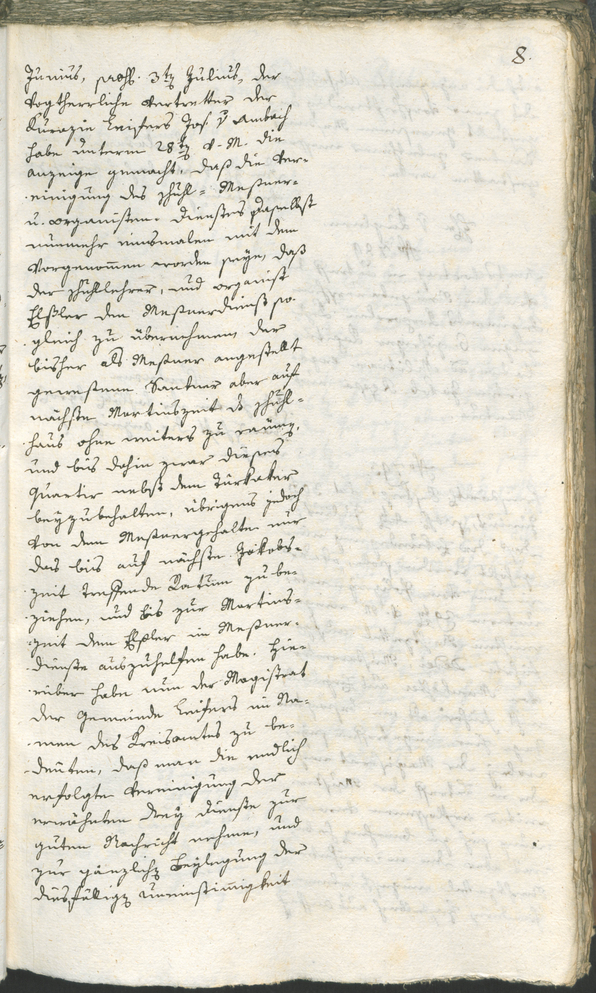 8.
Junius, praes. 3ten Julius, der
Vogtherrliche Vertretter der
Kurazie Leifers Jos. v Ambach
habe unterm 28ten v. M. die
anzeige gemacht, daß die Ver-
einigung des Schuhl- Meßner-
u. organisten- Dienstes daselbst
nunmehr einsmalen mit dem
Vorgenommen worden seye, daß
der Schullehrer, und organist
Eheler den Meßnerdienst so-
gleich zu übernehmen, der
bisher als Meßner angestellt
gewesene Santner aber auf
nächste Martinszeit das Schuhl-
haus ohne weiters zu räumen,
und bis dahin zwar dieses
Quartir nebst dem Türkaker
beyzubehalten, übrigens jedoch
von dem Meßnergehalte nur
das bis auf nächste Jakobs-
zeit treffende Ratum zu be-
ziehen, und bis zur Martins-
zeit dem in Meßner-
dienste auszuhelfen habe. Hie-
rüber habe nun der Magistrat
der Gemeinde Leifers im Na-
men des Kreisamtes zu be-
deuten, daß man die endlich
erfolgte Vereinigung der
erwähnten drey Dienste zur
guten Nachricht nehme, und
zur gänzlichen Beylegung der
diesfälligen Uneinstimmigkeit